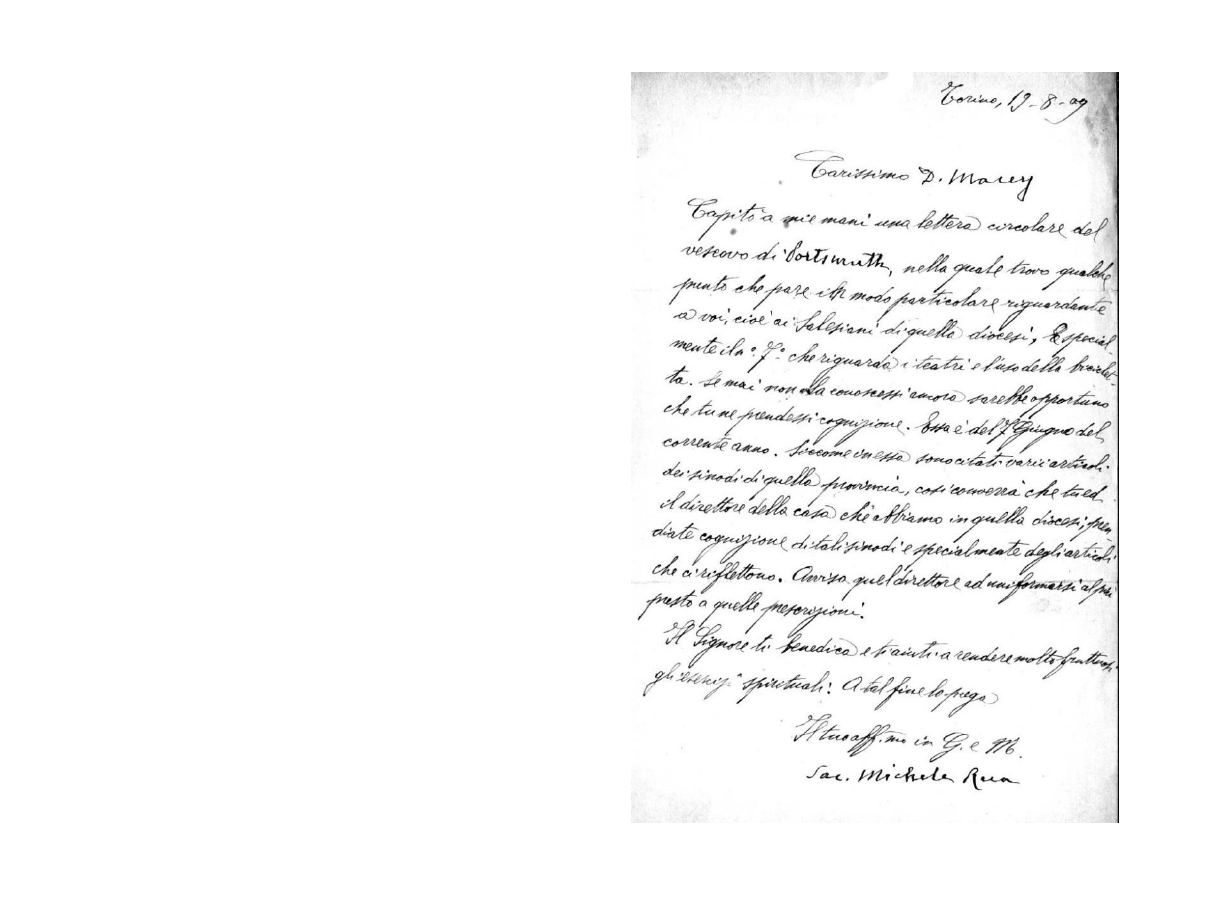 Torino, 19-8-09
Carissimo D. Macey
Capitò a mie mani una lettera circolare del
vescovo di Portsmuth, nella quale trovo qualche
punto che pare in modo particolare riguardante
a voi, cioè ai Salesiani di quella diocesi, Especial-
mente il nº. 7º. che riguarda i teatri e l'uso della biciclet-
ta. Se mai non la conoscessi ancora sarebbe opportuno
che tu ne prendessi cognizione. Essa è del 7 Giugno del
corrente anno. Siccome in essa sono citati varii articoli
dei sinodi di quella provincia, così converrà che tu ed
il direttore della casa che abbiamo in quella diocesi, pren
diate cognizione di tali sinodi e specialmente degli articoli
che ci riflettono. Avvisa quel direttore ad uniformarsi al più
presto a quelle prescrizioni.
Il Signore ti benedica e ti aiuti a rendere molto fruttuosi
gli esercizi spirituali. A tal fine lo prega
Il tuo aff.mo in G. e M.
Sac. Michele Rua